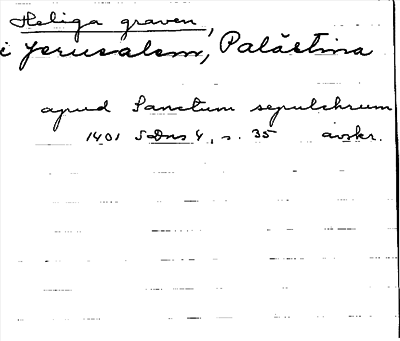 Heliga graven,
i Jerusalem, Palästina
apud Sanctum sepulchrum
1401 SDns 4, s. 35 avskr.